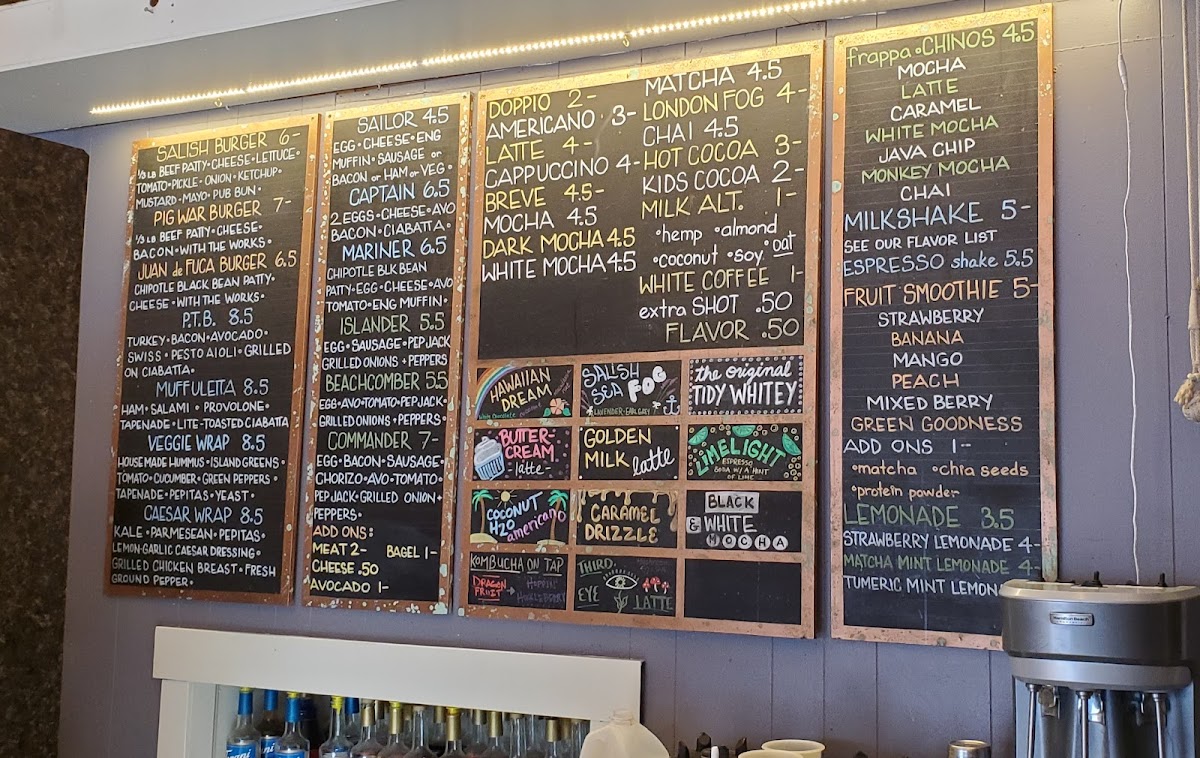 SALISH BURGER 6-
1/3 LB BEEF PATTY • CHEESE • LETTUCE •
TOMATO • PICKLE • ONION • KETCHUP •
MUSTARD • MAYO • PUB BUN •
PIG WAR BURGER 7-
1/3 LB BEEF PATTY • CHEESE •
BACON • WITH THE WORKS •
JUAN de FUCA BURGER 6.5
CHIPOTLE BLACK BEAN PATTY •
CHEESE • WITH THE WORKS •
P.T.B. 8.5
TURKEY • BACON • AVOCADO •
SWISS • PESTO AIOLI • GRILLED
ON CIABATTA •
MUFFULETTA 8.5
HAM • SALAMI • PROVOLONE •
TAPENADE • LITE-TOASTED CIABATTA
VEGGIE WRAP 8.5
HOUSE MADE HUMMUS • ISLAND GREENS •
TOMATO • CUCUMBER • GREEN PEPPERS •
TAPENADE • PEPITAS • YEAST •
CAESAR WRAP 8.5
KALE • PARMESEAN • PEPITAS •
LEMON-GARLIC CAESAR DRESSING •
GRILLED CHICKEN BREAST • FRESH
GROUND PEPPER •
SAILOR 4.5
EGG • CHEESE • ENG
MUFFIN • SAUSAGE or
BACON or HAM or VEG •
CAPTAIN 6.5
2 EGGS • CHEESE • AVO
BACON • CIABATTA •
MARINER 6.5
CHIPOTLE BLK BEAN
PATTY • EGG • CHEESE • AVO
TOMATO • ENG MUFFIN •
ISLANDER 5.5
EGG • SAUSAGE • PEPJACK
GRILLED ONIONS + PEPPERS
BEACHCOMBER 5.5
EGG • AVO • TOMATO • PEPJACK •
GRILLED ONIONS + PEPPERS •
COMMANDER 7-
EGG • BACON • SAUSAGE •
CHORIZO • AVO • TOMATO •
PEPJACK • GRILLED ONION +
PEPPERS •
ADD ONS:
MEAT 2- BAGEL 1-
CHEESE .50
AVOCADO 1-
DOPPIO 2-
AMERICANO 3-
LATTE 4-
CAPPUCCINO 4-
BREVE 4.5-
MOCHA 4.5
DARK MOCHA 4.5
WHITE MOCHA 4.5
MATCHA 4.5
LONDON FOG 4-
CHAI 4.5
HOT COCOA 3-
KIDS COCOA 2-
MILK ALT. 1-
•hemp •almond
•coconut •soy •oat
WHITE COFFEE 1-
extra SHOT .50
FLAVOR .50
HAWAIIAN
DREAM
White Chocolate
SALISH
SEA FOG
LAVENDER-EARL GREY
the original
TIDY WHITEY
BUTTER-
CREAM
-latte-
GOLDEN
MILK latte
LIMELIGHT
ESPRESSO
SODA W/ A HINT
OF LIME
COCONUT
H2O
americano
CARAMEL
DRIZZLE
BLACK
& WHITE
MOCHA
KOMBUCHA ON TAP
DRAGON
FRUIT
HUCKLEBERRY
THIRD
EYE
LATTE
frappa•CHINOS 4.5
MOCHA
LATTE
CARAMEL
WHITE MOCHA
JAVA CHIP
MONKEY MOCHA
CHAI
MILKSHAKE 5-
SEE OUR FLAVOR LIST
ESPRESSO shake 5.5
FRUIT SMOOTHIE 5-
STRAWBERRY
BANANA
MANGO
PEACH
MIXED BERRY
GREEN GOODNESS
ADD ONS 1-
•matcha •chia seeds
•protein powder
LEMONADE 3.5
STRAWBERRY LEMONADE 4-
MATCHA MINT LEMONADE 4-
TUMERIC MINT LEMON
Hamilton Beach